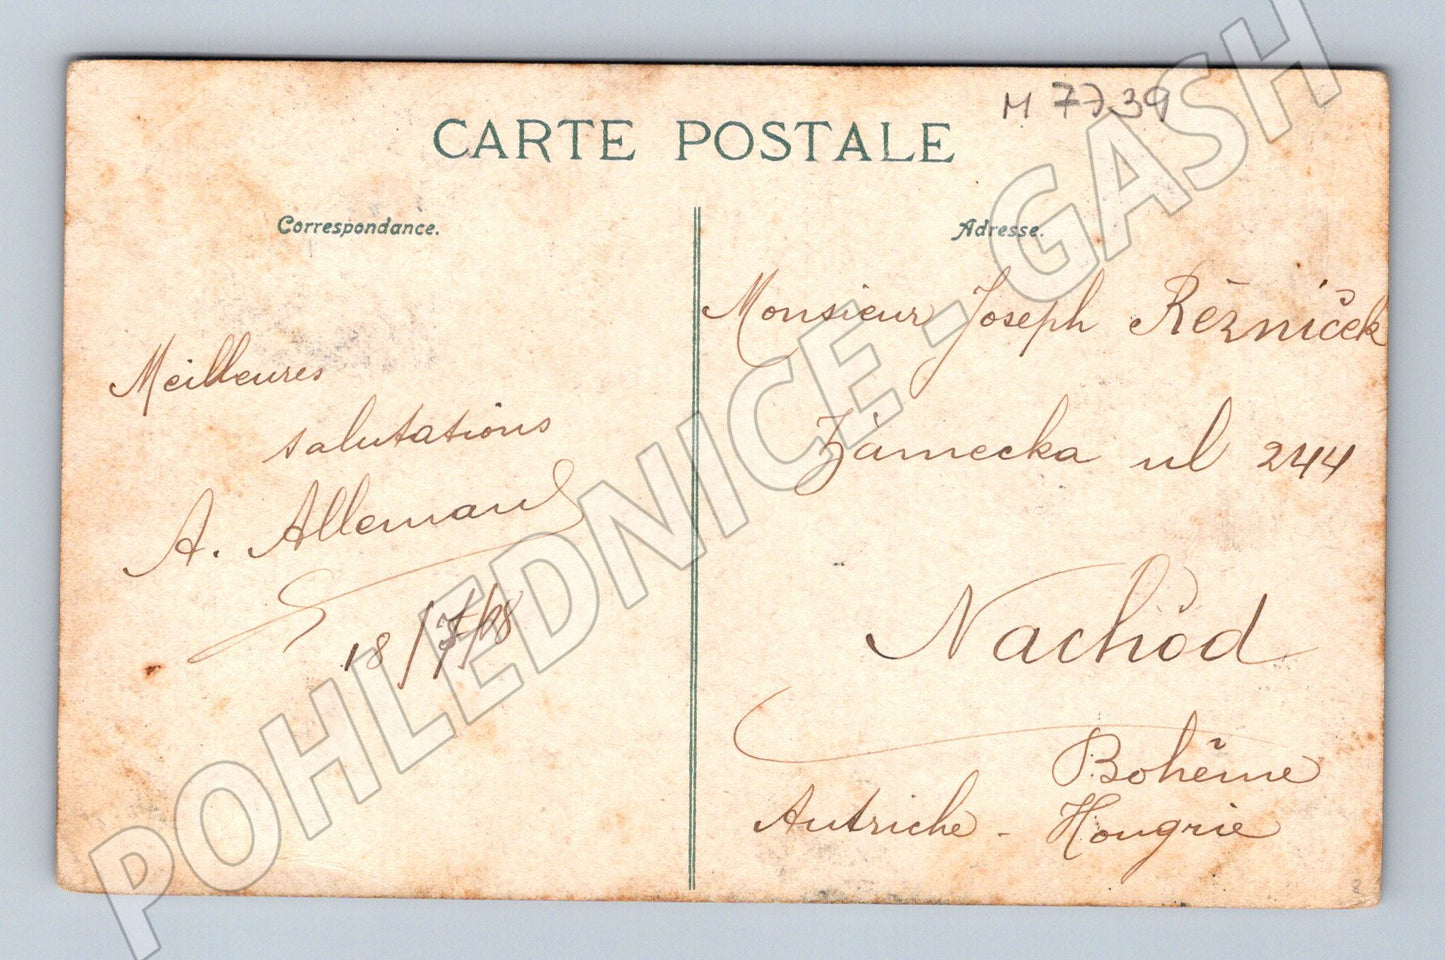 M 7739
CARTE POSTALE
Correspondance.
Meilleures
salutations
A. Allemand
18/7/08
Adresse.
Monsieur Joseph Řezníček
Zámecka ul 244
Nachod
Bohême
Autriche - Hongrie
POHLEDNICE - GASH